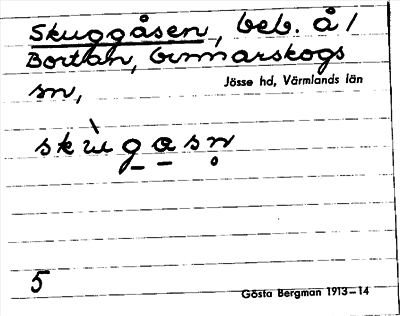 Skuggåsen, beb. å /
Bortan, Gunnarskogs
Jösse hd, Värmlands län
sn,
skùgasn̥
5
Gösta Bergman 1913–14